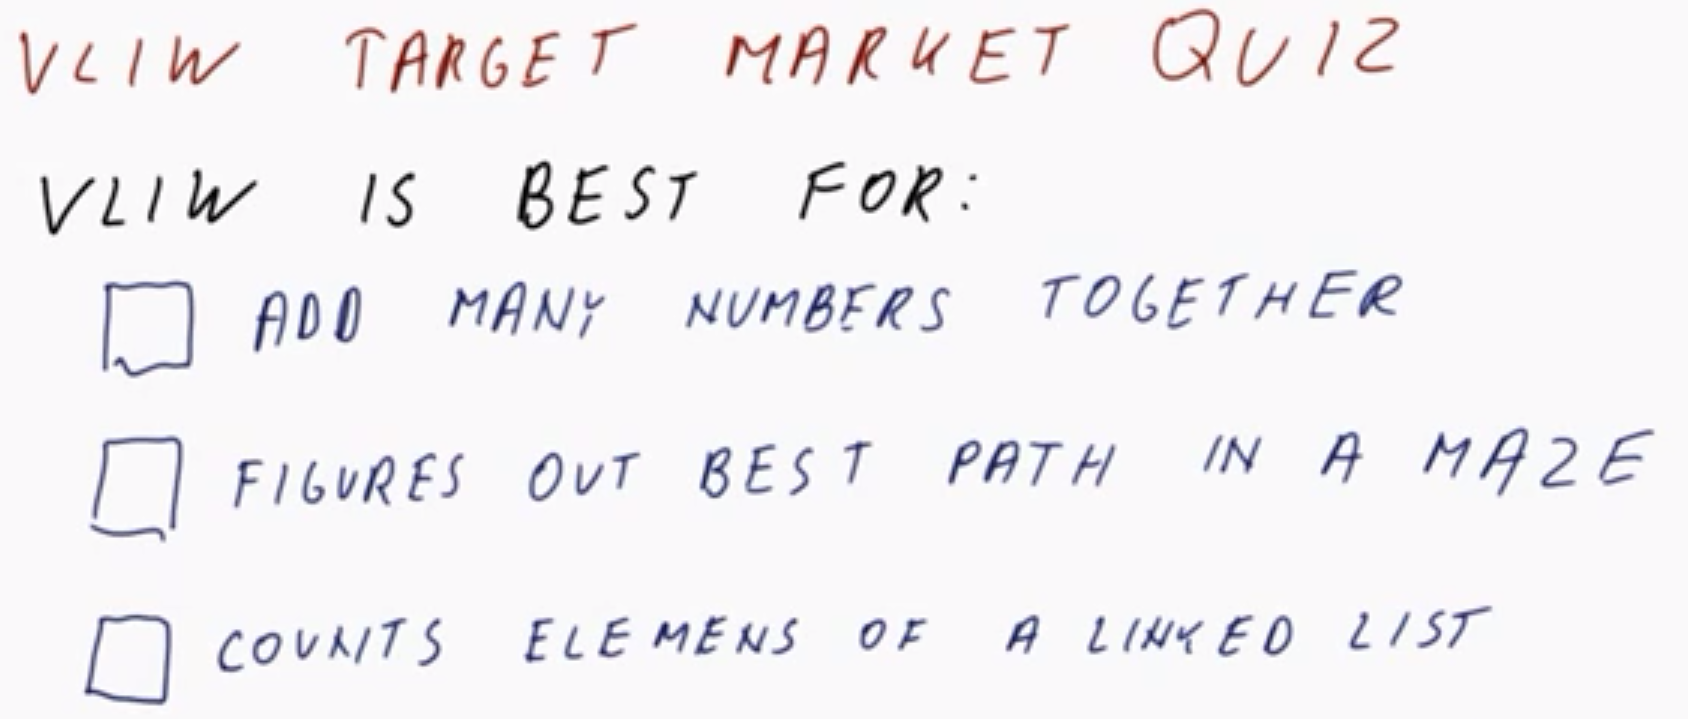 VLIW TARGET MARKET QUIZ
VLIW IS BEST FOR:
ADD MANY NUMBERS TOGETHER
FIGURES OUT BEST PATH IN A MAZE
COUNTS ELEMENS OF A LINKED LIST